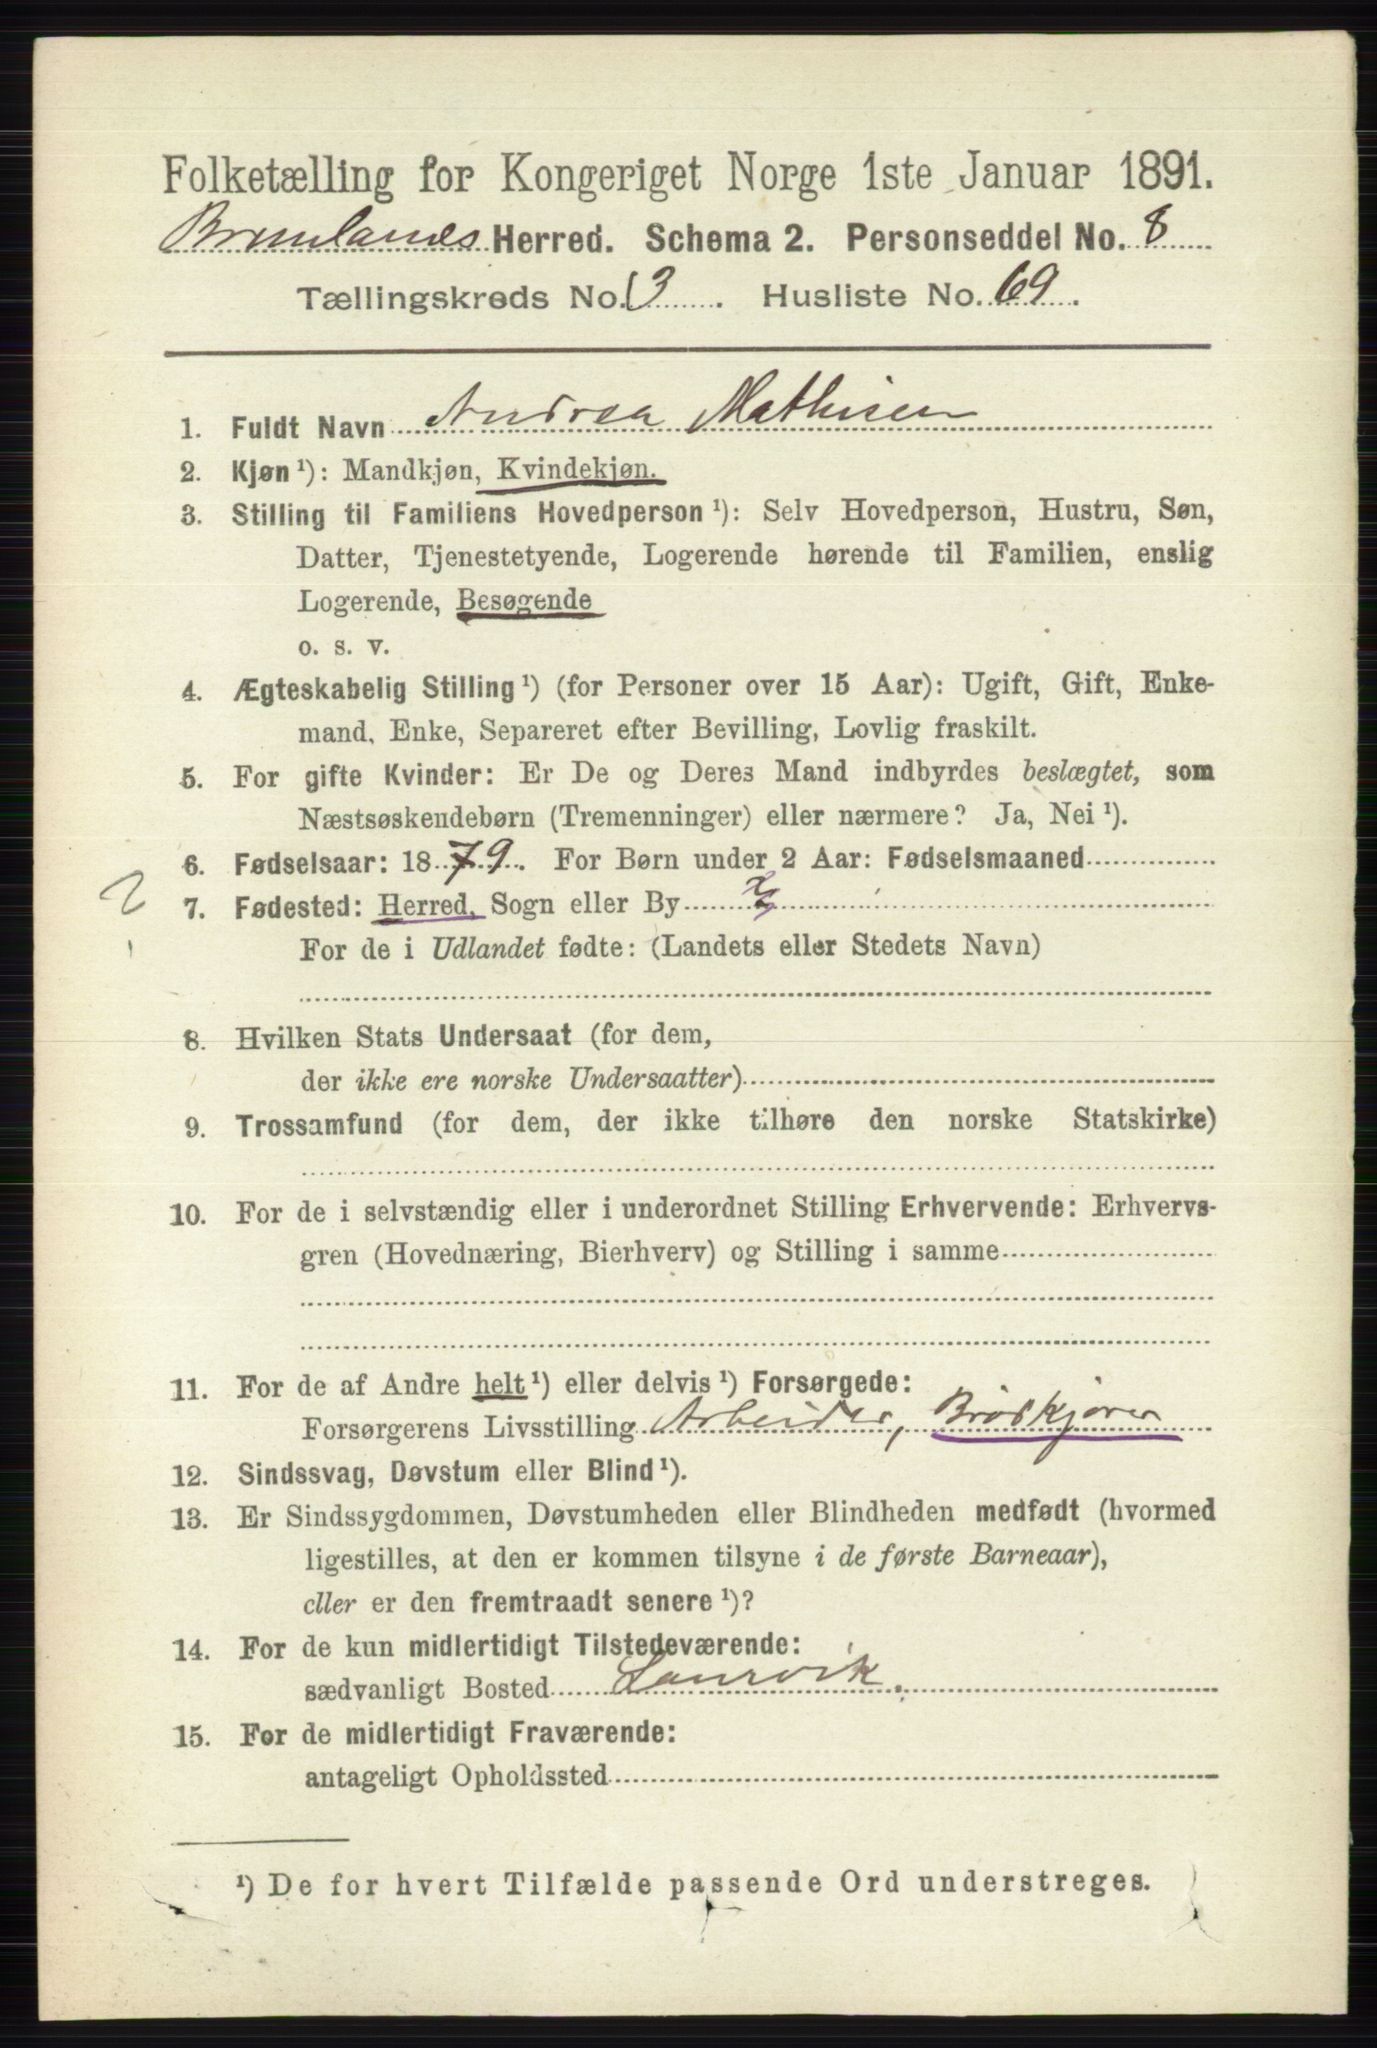 Folketælling for Kongeriget Norge 1ste Januar 1891.
Brunlanes Herred. Schema 2. Personseddel No. 8
Tællingskreds No. 3. Husliste No. 69.
1. Fuldt Navn Andrea Mathisen
2. Kjøn ¹): Mandkjøn, Kvindekjøn.
3. Stilling til Familiens Hovedperson ¹): Selv Hovedperson, Hustru, Søn,
Datter, Tjenestetyende, Logerende hørende til Familien, enslig
Logerende, Besøgende
o. s. v.
4. Ægteskabelig Stilling ¹) (for Personer over 15 Aar): Ugift, Gift, Enke-
mand, Enke, Separeret efter Bevilling, Lovlig fraskilt.
5. For gifte Kvinder: Er De og Deres Mand indbyrdes beslægtet, som
Næstsøskendebørn (Tremenninger) eller nærmere? Ja, Nei ¹).
6. Fødselsaar: 1879. For Børn under 2 Aar: Fødselsmaaned
7. Fødested: Herred, Sogn eller By
For de i Udlandet fødte: (Landets eller Stedets Navn)
8. Hvilken Stats Undersaat (for dem,
der ikke ere norske Undersaatter)
9. Trossamfund (for dem, der ikke tilhøre den norske Statskirke)
10. For de i selvstændig eller i underordnet Stilling Erhvervende: Erhvervs-
gren (Hovednæring, Bierhverv) og Stilling i samme
11. For de af Andre helt ¹) eller delvis ¹) Forsørgede:
Forsørgerens Livsstilling Arbeider, Brødkjører
12. Sindssvag, Døvstum eller Blind ¹).
13. Er Sindssygdommen, Døvstumheden eller Blindheden medfødt (hvormed
ligestilles, at den er kommen tilsyne i de første Barneaar),
eller er den fremtraadt senere ¹)?
14. For de kun midlertidigt Tilstedeværende:
sædvanligt Bosted Laurvik.
15. For de midlertidigt Fraværende:
antageligt Opholdssted
¹) De for hvert Tilfælde passende Ord understreges.